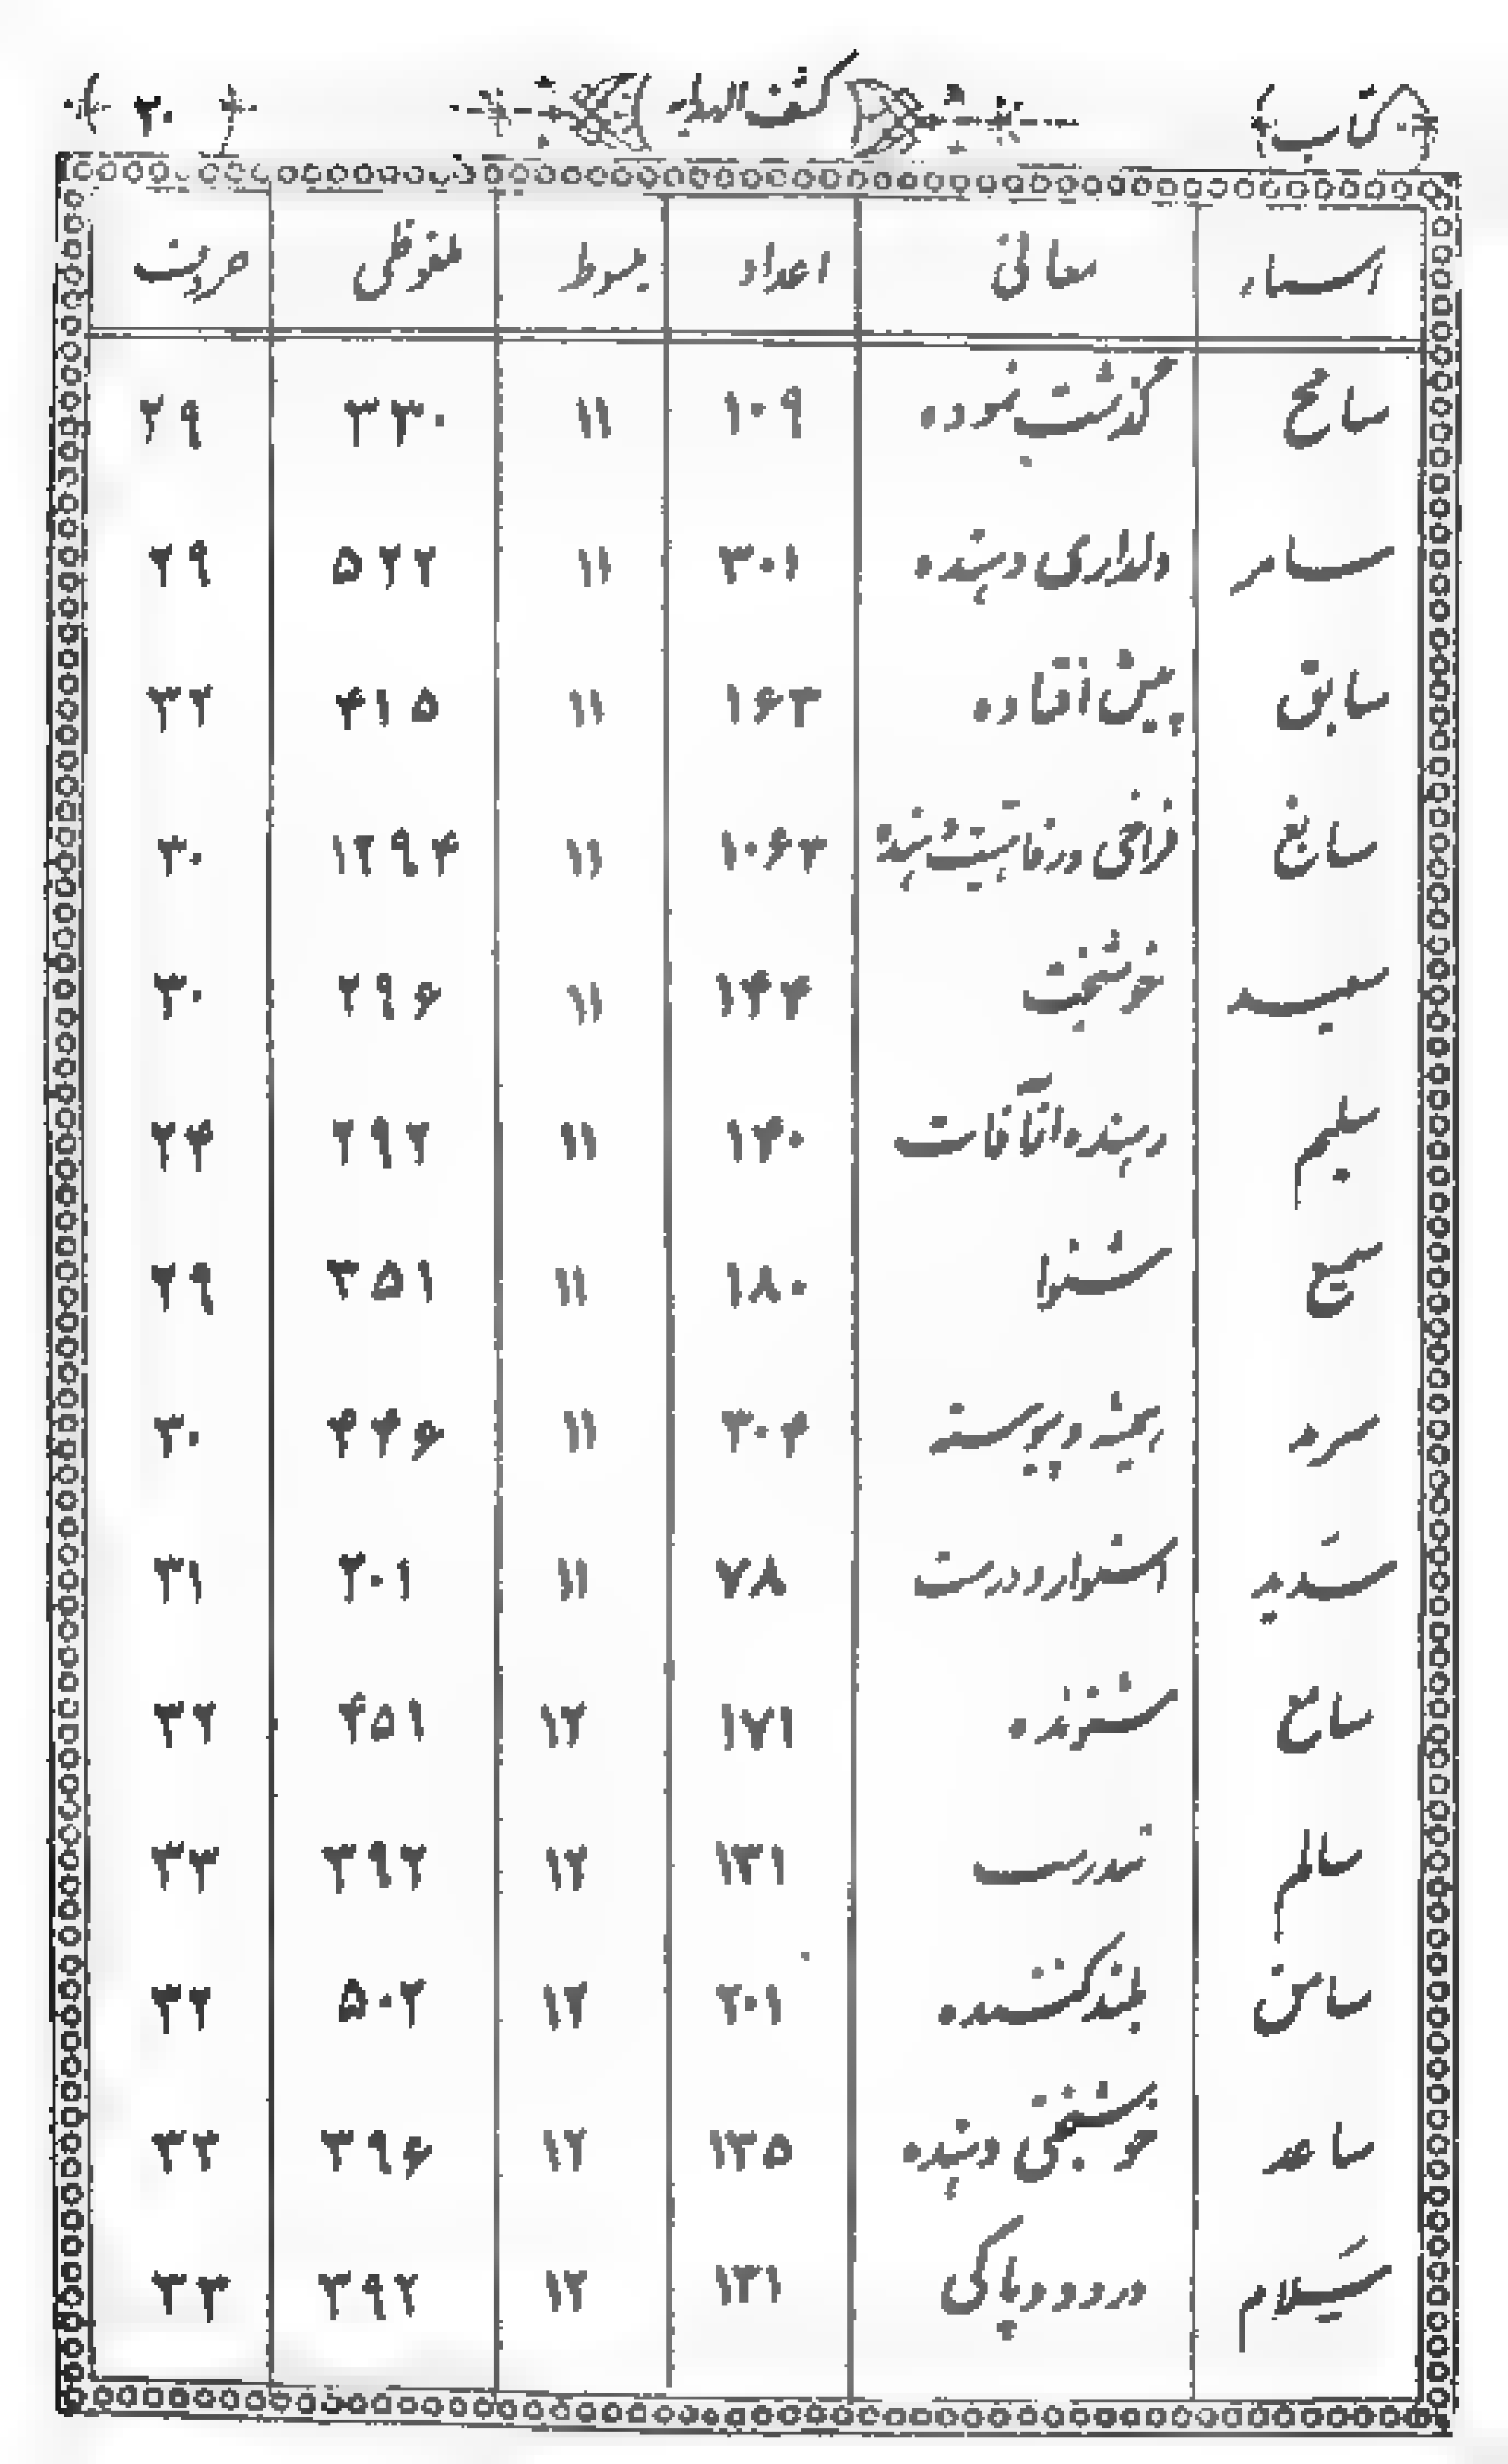 کتاب کشف الهدایه ۲۰
اسماء معانی اعداد مبسوط ملفوظی حروف
سامح گذشت نموده ۱۰۹ ۱۱ ۳۳۰ ۲۹
سامر دلداری دهنده ۳۰۱ ۱۱ ۵۲۲ ۲۹
سابق پیش افتاده ۱۶۳ ۱۱ ۴۱۵ ۳۲
سابغ فراخی دهنده ۱۰۶۳ ۱۱ ۱۲۹۴ ۳۰
سعید خوشبخت ۱۴۴ ۱۱ ۲۹۶ ۳۰
سلیم ۱۴۰ ۱۱ ۲۹۲ ۲۴
سمیع شنوا ۱۸۰ ۱۱ ۳۵۱ ۲۹
سرمد همیشه و پیوسته ۳۰۴ ۱۱ ۴۴۶ ۳۰
سَدید استوار و درست ۷۸ ۱۱ ۲۰۱ ۳۱
سامع شنونده ۱۷۱ ۱۲ ۴۵۱ ۳۲
سالم تندرست ۱۳۱ ۱۲ ۳۹۲ ۳۳
سامق بلند کننده ۲۰۱ ۱۲ ۵۰۲ ۳۲
ساعد خوشبختی دهنده ۱۳۵ ۱۲ ۳۹۶ ۳۳
سَلام درود و پاکی ۱۳۱ ۱۲ ۳۹۲ ۳۳